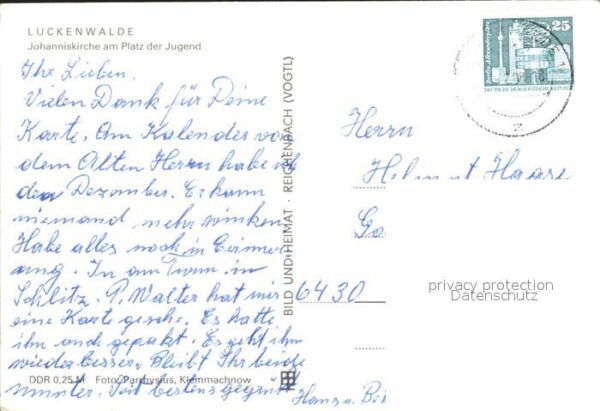 LUCKENWALDE
Johanniskirche am Platz der Jugend
Ihr Lieben.
Vielen Dank für Deine
Karte. Am Kalender von
dem Alten Herrn habe ich
den Dezember. Er kann
niemand mehr winken.
Habe alles noch in Erinner
ung. In am Turm in
Schlitz. P. Walter hat mir
eine Karte gesche. Es hatte
ihn auch gepakt. Es geht ihm
wieder besser. Bleibt Ihr beide
munter. Seit bestens gegrüßt
Hans u.
DDR 0,25 M Foto: Parchysius, Kleinmachnow
BILD UND HEIMAT · REICHENBACH (VOGTL)
25
Berlin, Alexanderplatz
DEUTSCHE DEMOKRATISCHE REPUBLIK
Herrn
Helmut Haase
6430
privacy protection
Datenschutz